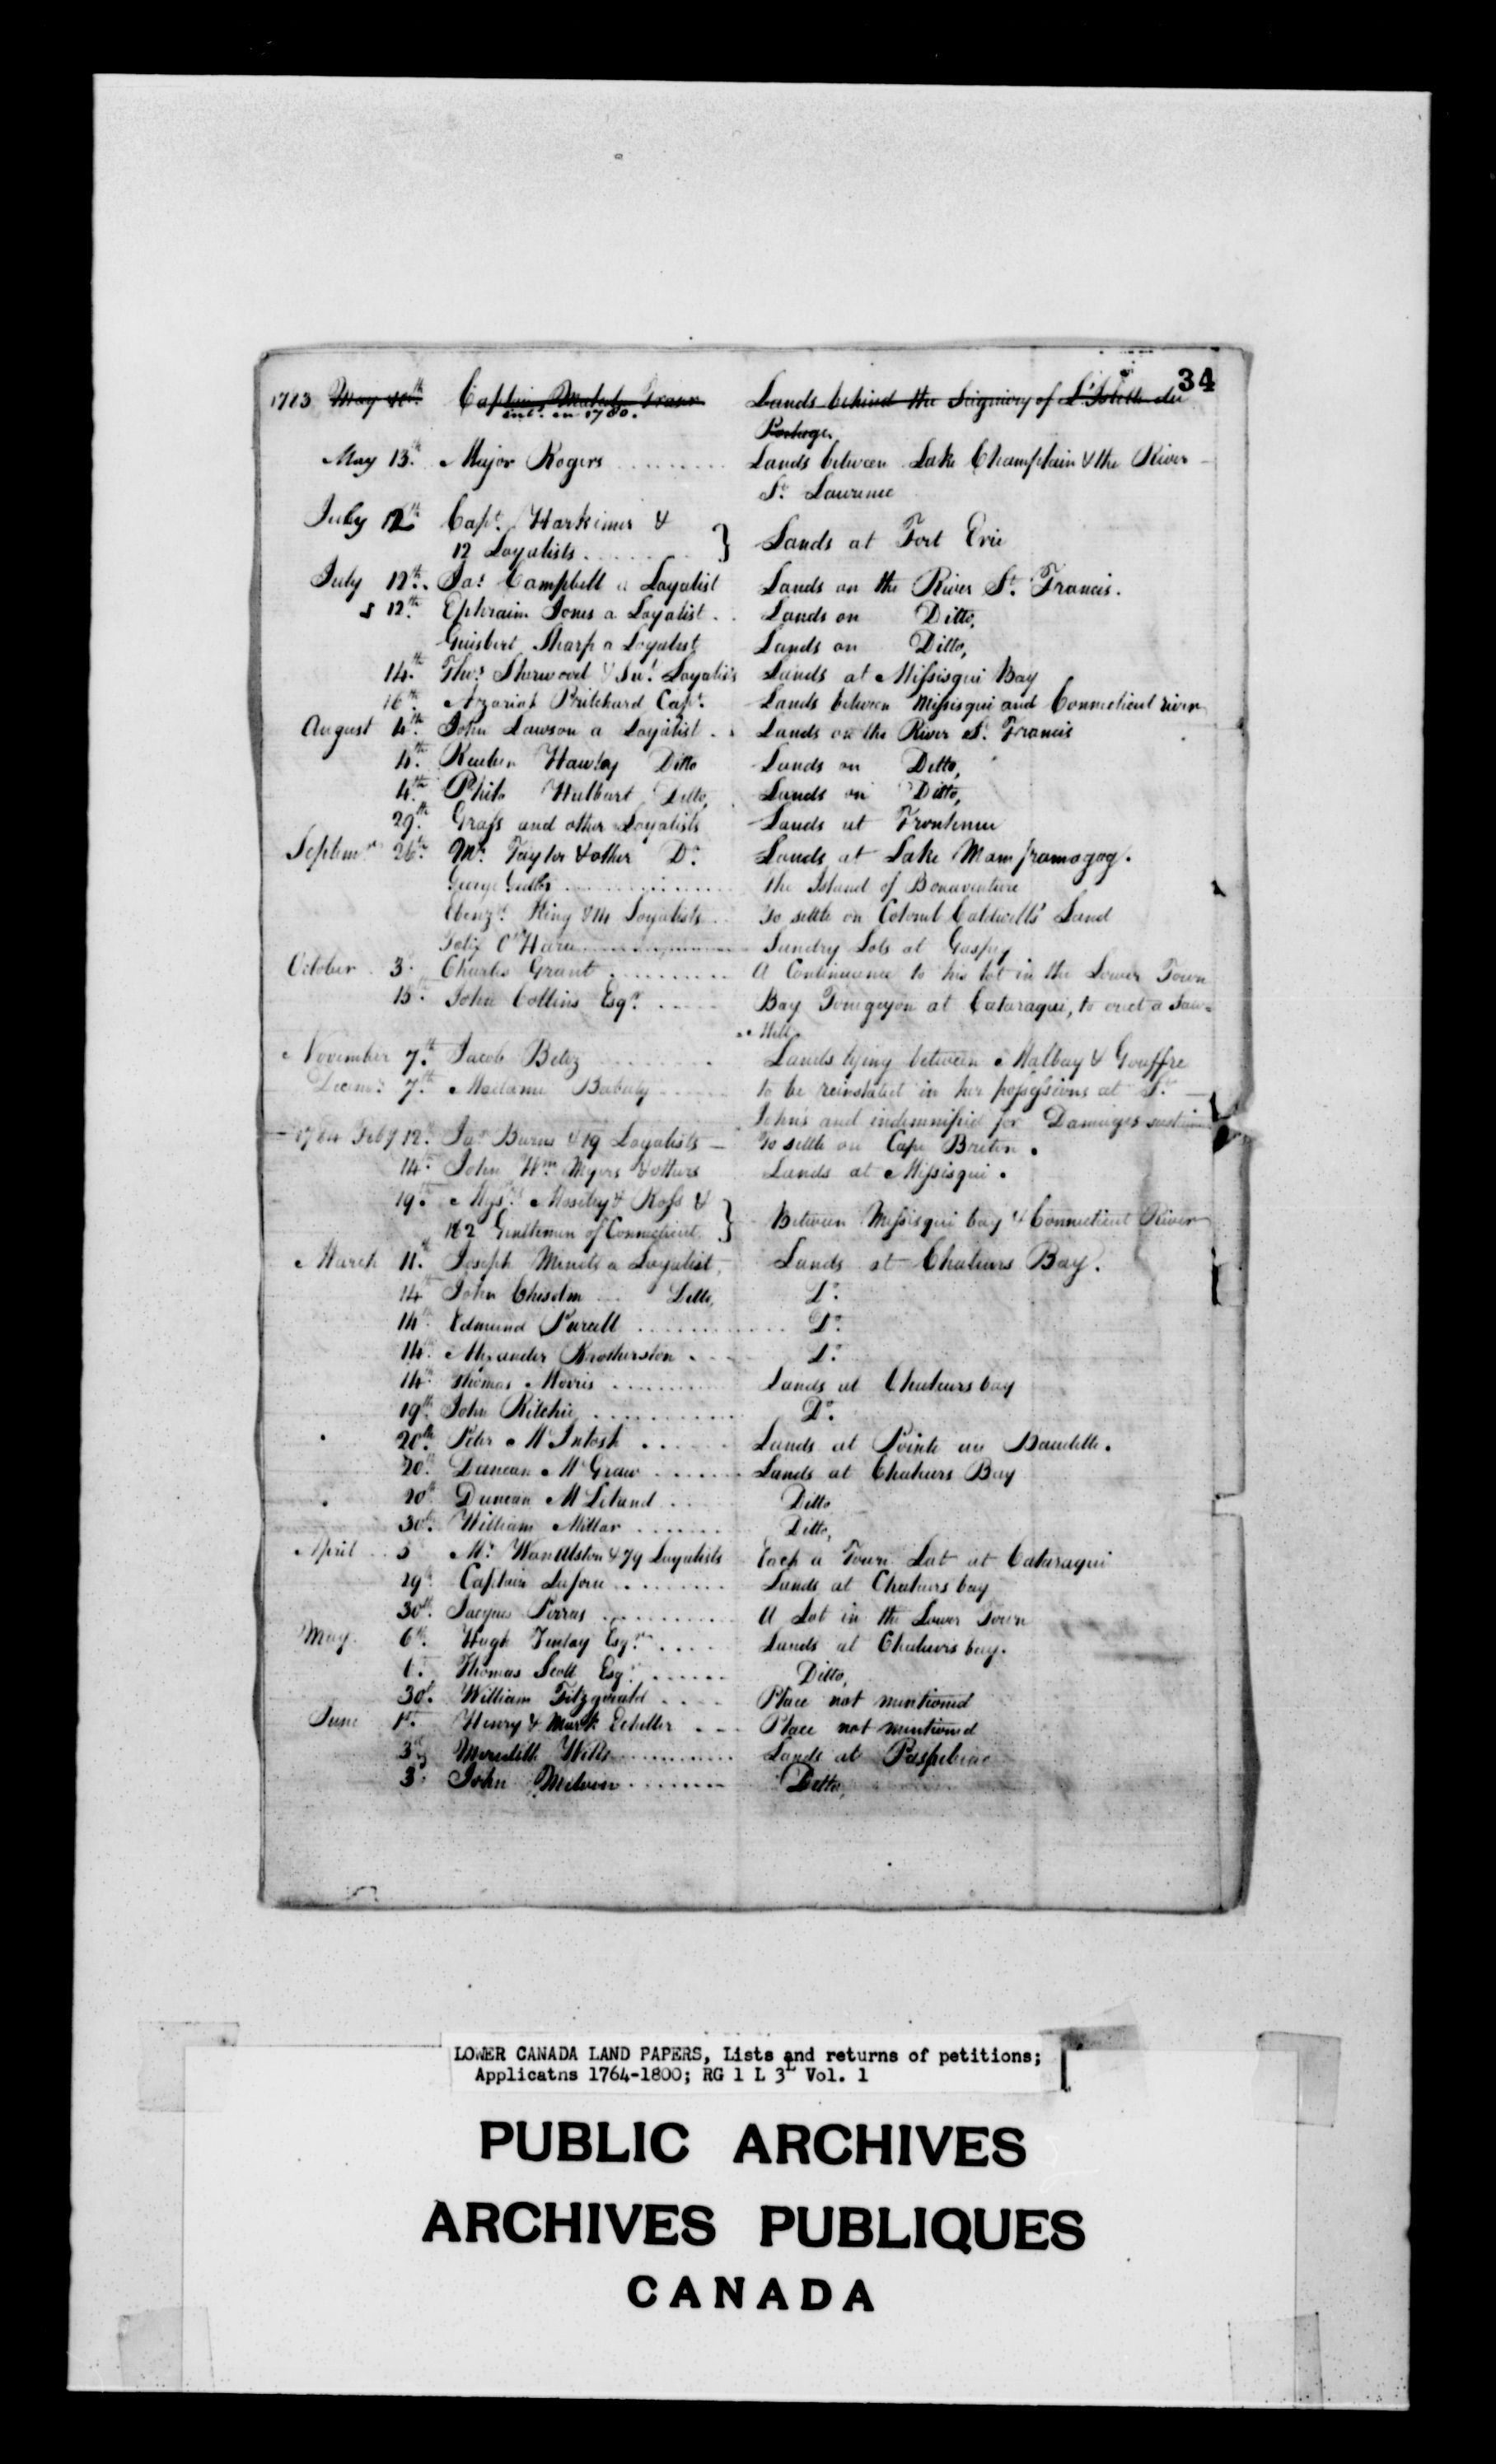 34
1783 May 10th. Captain Malcolm Fraser Lands behind the Seigniory of L'Islette du
ent.d in 1780. Portage.
May 13.th Major Rogers .......... Lands between Lake Champlain & the River
St. Laurence
July 12th Capt. Harkimer &
12 Loyalists ......... } Lands at Fort Erie
July 12th. Jas. Campbell a Loyalist Lands on the River St. Francis.
12th. Ephraim Jones a Loyalist .. Lands on Ditto,
Guisbert Sharp a Loyalist Lands on Ditto,
14.th Thos. Sherwood & Loyalists Lands at Missisqui Bay
16th. Azariah Pritchard Capt. Lands between Missisqui and Connecticut river
August 4.th John Lawson a Loyalist .. Lands on the River St. Francis
4.th Reuben Hawley Ditto Lands on Ditto,
4.th Philo Hulburt Ditto, Lands on Ditto,
29.th Grass and other Loyalists Lands at Frontenac
Septemr. 26th. Mr. Taylor & other Do. Lands at Lake Mamframagog.
George ............... The Island of Bonaventure
Ebenzr. King & Loyalists .. To settle on Colonel Caldwells' Land
Felix O'Hara ............... Sundry Lots at Gaspey
October 3. Charles Grant .......... A Continuance to his lot in the Lower Town
15. John Collins Esqr. ..... Bay at Cataraqui, to erect a Saw-
Mill.
November 7.th Jacob Betez ....... Lands lying between Malbay & Gouffre
Decemr. 7.th Madame Babuty ...... to be reinstated in her possessions at St.
John's and indemnified for Damages
1784 Feby 12. Jas. Burns & 19 Loyalists — To settle on Cape Breton.
14. John Wm. Myers & others Lands at Missisqui.
19. Messrs. Moseley & Ross &
162 Gentlemen of Connecticut. } Between Missisqui bay & Connecticut River
March 11.th Joseph a Loyalist, Lands at Chaleurs Bay.
14th John Chisolm ... Ditto, Do.
14th. Edmund Purcell ............... Do.
14. Alexander Brotherston .... Do.
14th. Thomas Morris ........... Lands at Chaleurs bay
19th. John Ritchie ............ Do.
20th. Peter McIntosh ...... Lands at Pointe au Baudette.
20. Duncan McGraw ....... Lands at Chaleurs Bay
20th Duncan ... Ditto
30th. William Millar ....... Ditto,
April 5 Mr. & 79 Loyalists Each a Town Lot at Cataraqui
29. Captain ......... Lands at Chaleurs bay
30th. Jacques Perras ........... A Lot in the Lower Town
May 6th. Hugh Finlay Esqr. ..... Lands at Chaleurs bay.
6. Thomas Scott Esqr. ...... Ditto,
30th. William Fitzgerald .... Place not mentioned
June 1st. Henry & Mark ... Place not mentioned
3d. Meredith Wills ........... Lands at Paspebiac
3. John ........ Ditto,
LOWER CANADA LAND PAPERS, Lists and returns of petitions;
Applicatns 1764-1800; RG 1 L 3L Vol. 1
PUBLIC ARCHIVES
ARCHIVES PUBLIQUES
CANADA